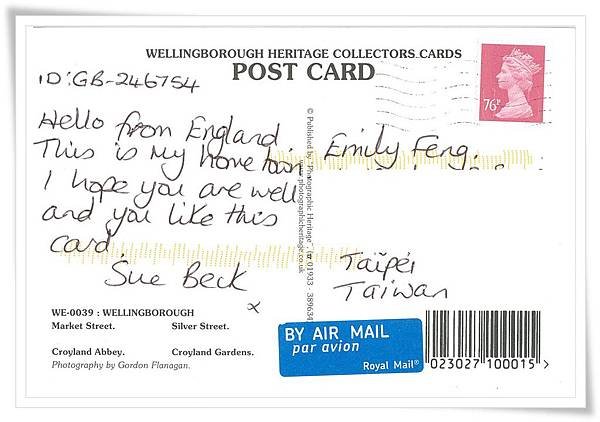 WELLINGBOROUGH HERITAGE COLLECTORS CARDS
POST CARD
ID:GB-246754
Hello from England
This is my home town
I hope you are well
and you like this
card.
Sue Beck
x
76P
Emily Feng,
Taïpéi
Taiwan
© Published by 'Photographic Heritage', Tel: 01933 - 389634
www.photographicheritage.co.uk
WE-0039 : WELLINGBOROUGH
Market Street. Silver Street.
Croyland Abbey. Croyland Gardens.
Photography by Gordon Flanagan.
BY AIR MAIL
par avion
Royal Mail®
023027 100015 >